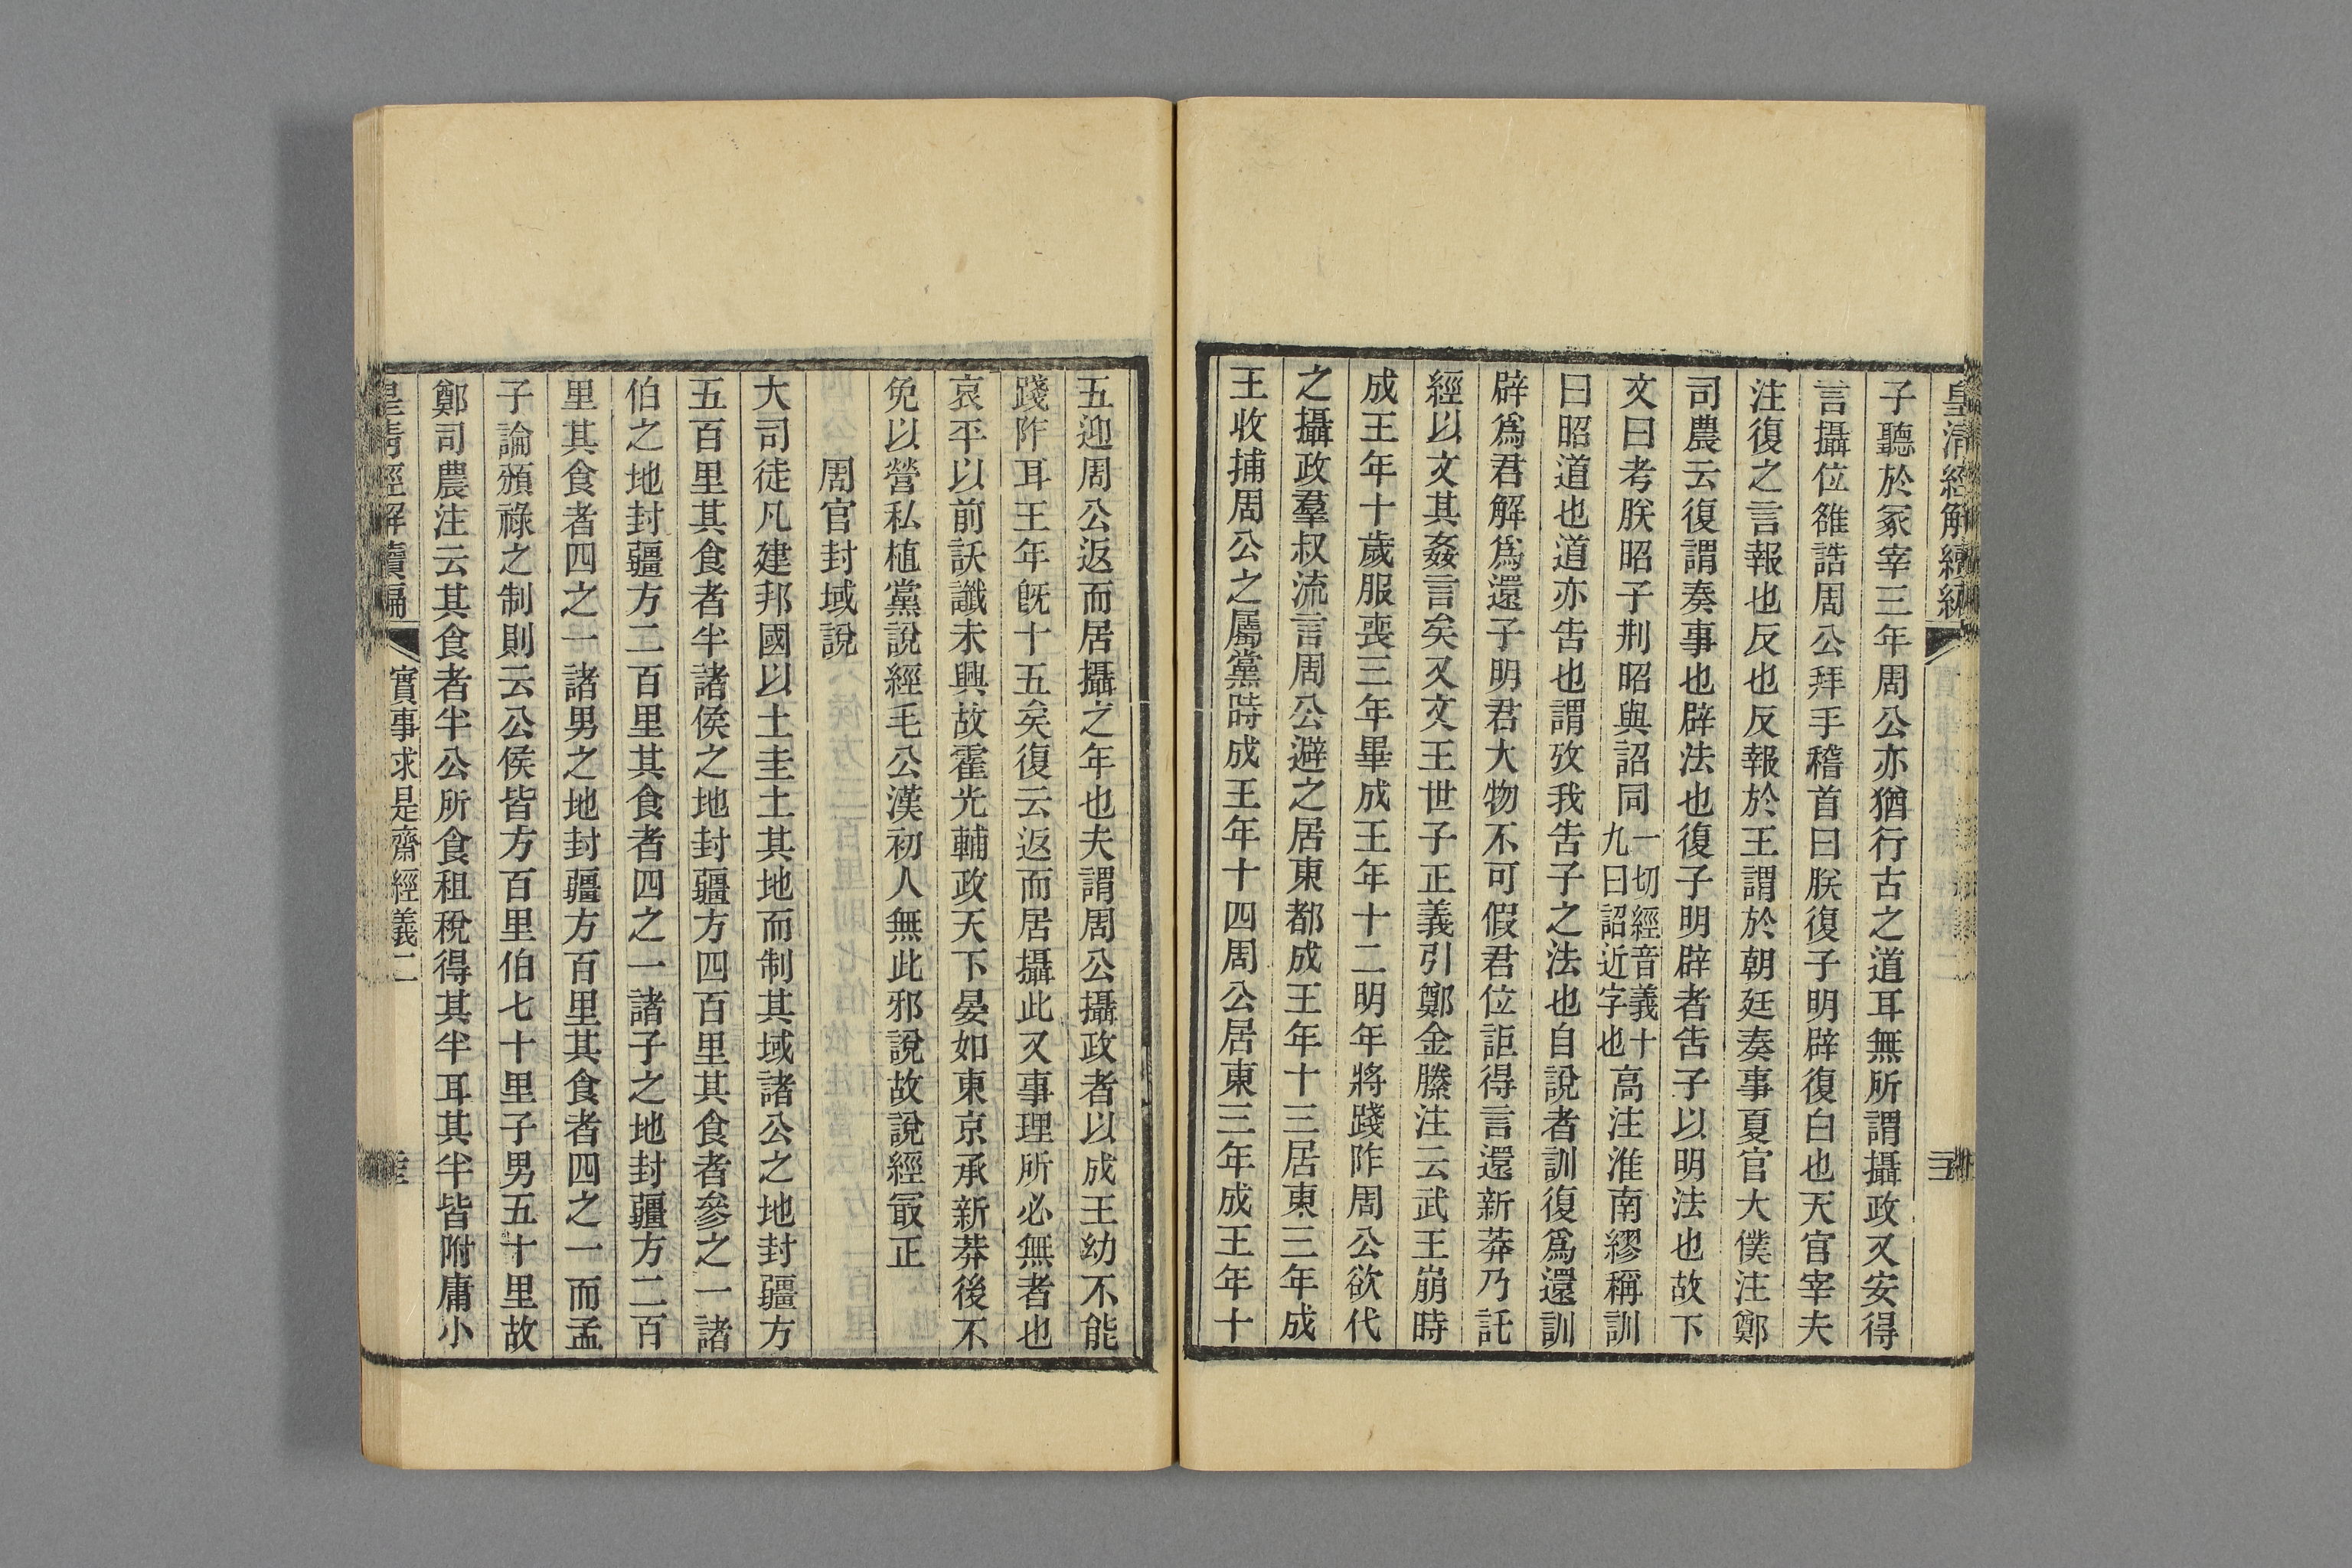 皇清經解續編
子聽於冢宰三年周公亦猶行古之道耳無所謂攝政又安得
言攝位雒誥周公拜手稽首曰朕復子明辟復白也天官宰夫
注復之言報也反也反報於王謂於朝廷奏事夏官大僕注鄭
司農云復謂奏事也辟法也復子明辟者告子以明法也故下
文曰考朕昭子刑昭與詔同一切經音義十九曰詔近字也高注淮南繆稱訓
曰昭道也道亦告也謂攷我告子之法也自說者訓復爲還訓
辟爲君解爲還子明君大物不可假君位詎得言還新莽乃託
經以文其姦言矣又文王世子正義引鄭金縢注云武王崩時
成王年十歲服喪三年畢成王年十二明年將踐阼周公欲代
之攝政羣叔流言周公避之居東都成王年十三居東三年成
王收捕周公之屬黨時成王年十四周公居東三年成王年十
五迎周公返而居攝之年也夫謂周公攝政者以成王幼不能
踐阼耳王年旣十五矣復云返而居攝此又事理所必無者也
哀平以前訞讖未興故霍光輔政天下晏如東京承新莽後不
免以營私植黨說經毛公漢初人無此邪說故說經冣正
周官封域說
大司徒凡建邦國以土圭土其地而制其域諸公之地封疆方
五百里其食者半諸侯之地封疆方四百里其食者參之一諸
伯之地封疆方二百里其食者四之一諸子之地封疆方二百
里其食者四之一諸男之地封疆方百里其食者四之一而孟
子論頒祿之制則云公侯皆方百里伯七十里子男五十里故
鄭司農注云其食者半公所食租稅得其半耳其半皆附庸小
皇清經解續編 實事求是齋經義二